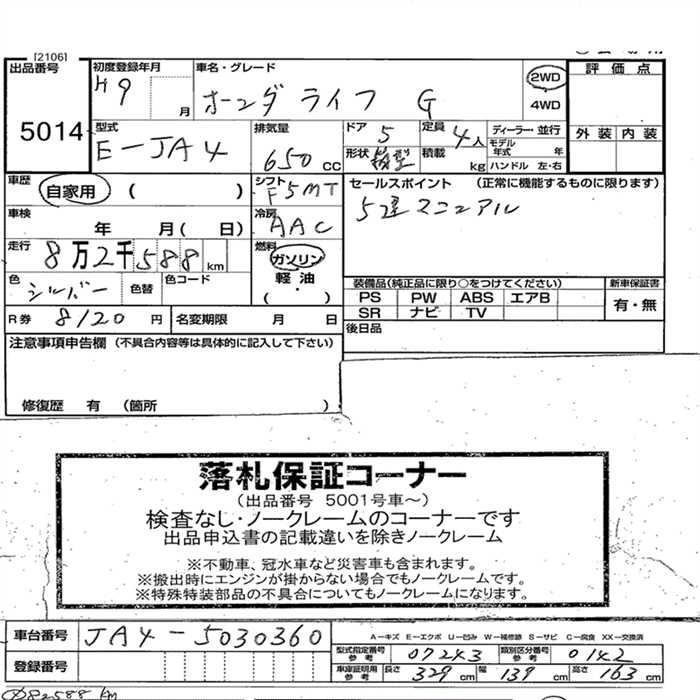 [2106]
出品番号 5014
初度登録年月 H9 月
車名・グレード ホンダ ライフ G
2WD
4WD
評価点
外装 内装
型式 E-JA4
排気量 650 cc
ドア 5
定員 4人
形状 箱型
積載 kg
ディーラー・並行
モデル年式 年
ハンドル 左・右
車歴 自家用 ( )
シフト F5MT
セールスポイント (正常に機能するものに限ります)
5速マニュアル
車検 年 月( 日)
冷房 AAC
走行 8万2千588 km
燃料 ガソリン
軽・油
( )
色 シルバー
色替
色コード
装備品(純正品に限り○をつけてください)
新車保証書
PS PW ABS エアB
SR ナビ TV
有・無
R券 8120 円
名変期限 月 日
後日品
注意事項申告欄 (不具合内容等は具体的に記入して下さい)
修復歴 有 (箇所 )
落札保証コーナー
(出品番号 5001号車~)
検査なし・ノークレームのコーナーです
出品申込書の記載違いを除きノークレーム
※不動車、冠水車など災害車も含まれます。
※搬出時にエンジンが掛からない場合でもノークレームです。
※特殊特装部品の不具合についてもノークレームになります。
車台番号 JA4-5030360
A-キズ E-エクボ U-凹み W-補修跡 S-サビ C-腐食 XX-交換済
型式指定番号 参考 07243
類別区分番号 参考 0142
登録番号
車庫証明用 参考 長さ 329 cm 幅 139 cm 高さ 163 cm
82588 km